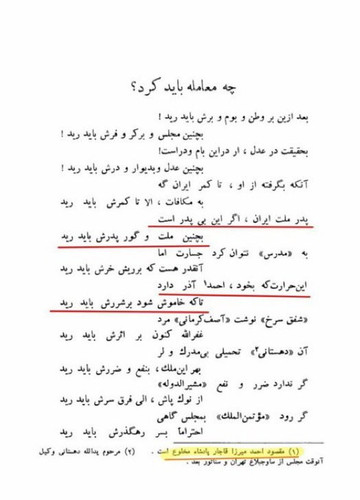 چه معامله باید کرد؟
بعد ازین بر وطن و بوم و برش باید رید !
بچنین مجلس و بر کر و فرش باید رید !
بحقیقت در عدل ، ار دراین بام ودراست!
بچنین عدل وبدیوار و درش باید رید !
آنکه بگرفته از او ، تا کمر ایران گه
به مکافات ، الا تا کمرش باید رید
پدر ملت ایران ، اگر این بی پدر است
بچنین ملت و گور پدرش باید رید
به «مدرس» نتوان کرد جسارت اما
آنقدر هست که برریش خرش باید رید
این‌حرارت‌که بخود، احمد۱ آذر دارد
تاکه خاموش شود برشررش باید رید
«شفق سرخ» نوشت «آصف‌کرمانی» مرد
غفرالله کنون بر اثرش باید رید
آن «دهستانی۲» تحمیلی بی‌مدرک و لر
بهر این‌ملك، بنفع و ضررش باید رید
گر ندارد ضرر و نفع «مشیرالدوله»
از نوك پاش ، الی فرق سرش باید رید
گر رود «مؤتمن‌الملك» بمجلس گاهی
احتراماً بسر رهگذرش باید رید
(۱) مقصود احمد میرزا قاجار پادشاه مخلوع است . (۲) مرحوم یدالله دهستانی وکیل
آنوقت مجلس از ساوجبلاغ تهران و سناتور بعد .